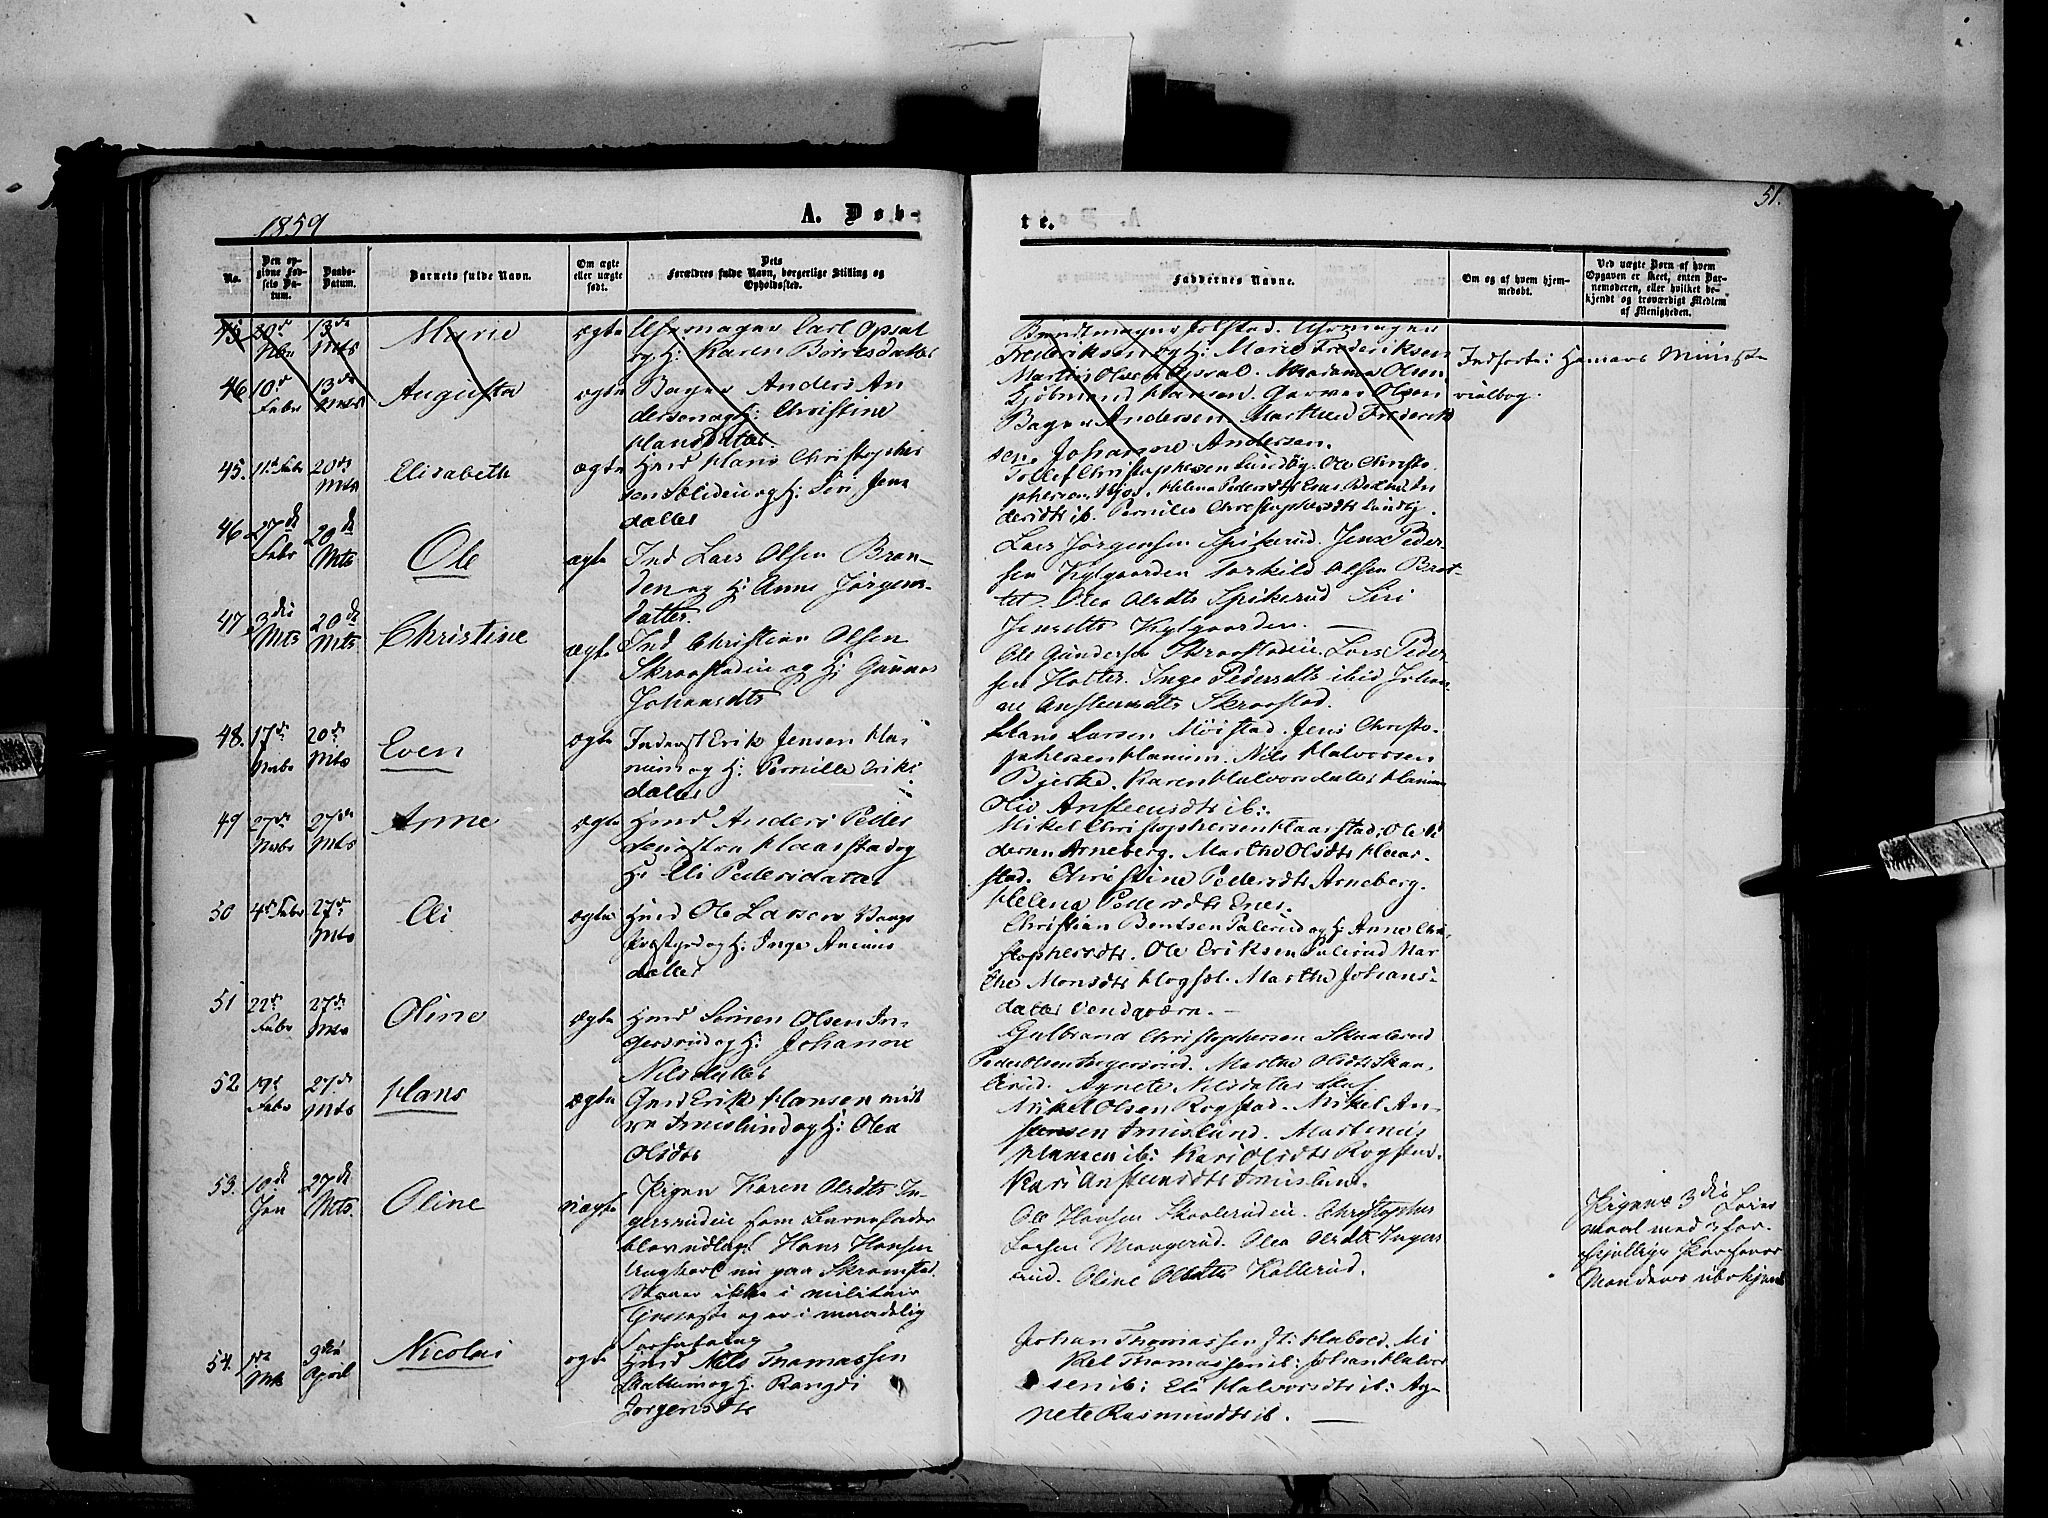 51.
1859
A. Døb-
te.
No.
Den op-
givne Fød-
sels Da-
tum.
Daabs-
Datum.
Barnets fulde Navn.
Om ægte
eller uægte
født.
Dets
Forældres fulde Navn, borgerlige Stilling og
Opholdssted.
Faddernes Navne.
Om og af hvem hjem-
medøbt.
Ved uægte Børn af hvem
Opgaven er skeet, enten Bar-
nemoderen, eller hvilket be-
kjendt og troværdigt Medlem
af Menigheden.
45
13de
Mts
Marie
ægte
Uhrmager Carl Opsal
og H: Karen Børresdatter
Buntmager Jolstad. Uhrmager
Frederiksen og H: Marie Frederiksen
Martin Olsen Opsal. Madame Olsen
Indførte i Hamars Ministe
rialbog.
46
10de
Febr
13de
Mts
Augusta
ægte
Bager Anders An
dersen og H: Christine
Hansdatter
Kjøbmand Hansen. Garver Olsen
Bager Andersen. Mathea Frederik
sen. Johanne Andersen.
45.
11te Febr
20de
Mts
Elisabeth
ægte
Hmd Hans Christopher
sen og H: Siri Jens
datter
Tollef Christophersen Lundby. Ole Christo
phersen Helene Pedersdtr
dersdtr ib. Pernille Christophersdtr Lundby.
46
27de
Febr
20de
Mts
Ole
ægte
Ind Lars Olsen Bran-
den og H: Anne Jørgens-
datter.
Lars Jørgensen Spikerud. Jens Peder-
sen Kylgaarden Torkild Olsen Brat-
tet. Olea Olsdtr Spikerud Siri
Jensdtr Kylgaarden. —
47
3die
Mts
20de
Mts
Christine
ægte
Ind Christian Olsen
Skraastadeie og H: Gunnor
Johansdtr
Ole Gundersen Skraastadeie. Lars Peder
sen Holter. Inge Pedersdtr ibid Johan-
ne Anstensdtr Skraastad.
48.
17de
20de
Mts
Even
ægte
Inderst Erik Jensen Ha
num og H: Pernille Eriks
datter
Hans Larsen Møistad. Jens Christo-
phersen Hanum. Nils Halvorsen
Bjerke. Karen Halvorsdatter Hanum
Oliv Anstensdtr ib:
49
27de
27de
Mts
Anne
ægte
Hmd Anders Peder
sen Haarstad og
H: Eli Pedersdatter
Mikel Christophersen Haarstad. Ole
Arneberg. Marthe Olsdtr Haar-
stad. Christine Pedersdtr Arneberg.
Helene Pedersdtr Ener.
50
4de Febr
27de
Mts
Eli
ægte
Hmd Ole Larsen Vangs
Præstgrd og H: Inge
datter
Christian Bentsen Palerud og H: Anne Chri
stophersdtr. Ole Eriksen Palerud Mar
the Monsdtr Marthe Johans-
datter —
51
22de
Febr
27de
Mts
Oline
ægte
Hmd Simen Olsen In-
gersrud og H: Johanne
Nilsdatter
Gulbrand Christophersen Skaalerud
Peder Olsen Ingersrud. Marthe Olsdtr Skaa-
lerud. Agnete Nilsdatter
52
19de
Febr
27de
Mts
Hans
ægte
Gmd Erik Hansen midt
re Imislund og H: Olea
Olsdtr
Mikel Olsen Rogstad. Mikel An-
sen Imislund. Martinus
Hansen ib: Kari Olsdtr Rogstad.
Kari Anstensdtr Imislund.
53.
10de
Jan
27de
Mts.
Oline
uægte
Pigen Karen Olsdtr In-
gersrudeie som Barnefader
blev udlagt Hans Hansen
Ungkarl nu paa Skramstad.
staaer ikke i militair
Tjeneste og er i maadelig
Forfatning
Ole Hansen Skaalerudeie. Christopher
Larsen Mangerud. Olea Olsdtr Ingers
rud. Oline Olsdtr Kollerud.
Pigens 3die Leier
maal med 3 for-
skjellige Personer
Manden ubekjendt
54.
1ste
Mts
3die
April
Nicolai
ægte
Hmd Nils Thomassen
og H: Rangdi
Jørgensdtr
Johan Thomassen
kel Thomassen ib: Johan Halvor
sen ib: Eli Halvorsdtr ib: Ag-
nete Rasmusdtr ib. —